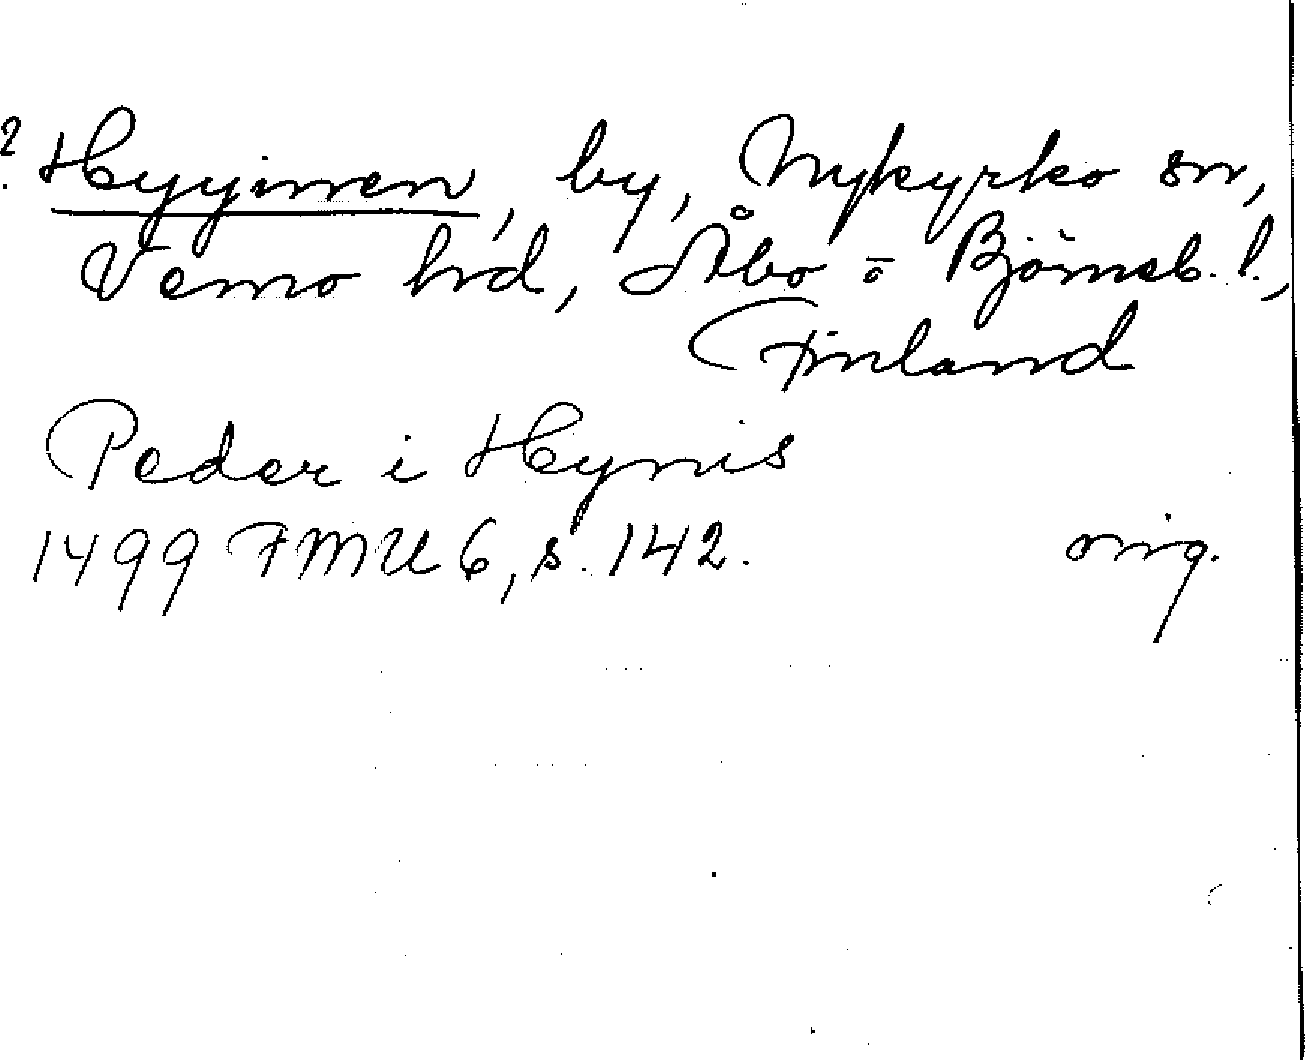 ? Hyyinen, by, Nykyrko sn,
Vemo hd, Åbo o Björneb. l.,
Finland
Peder i Hynis
1499 FMU 6, s. 142. orig.